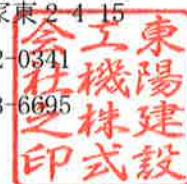 家東2-4-15
2-0341
3-6695
東陽建設
工機株式
会社之印